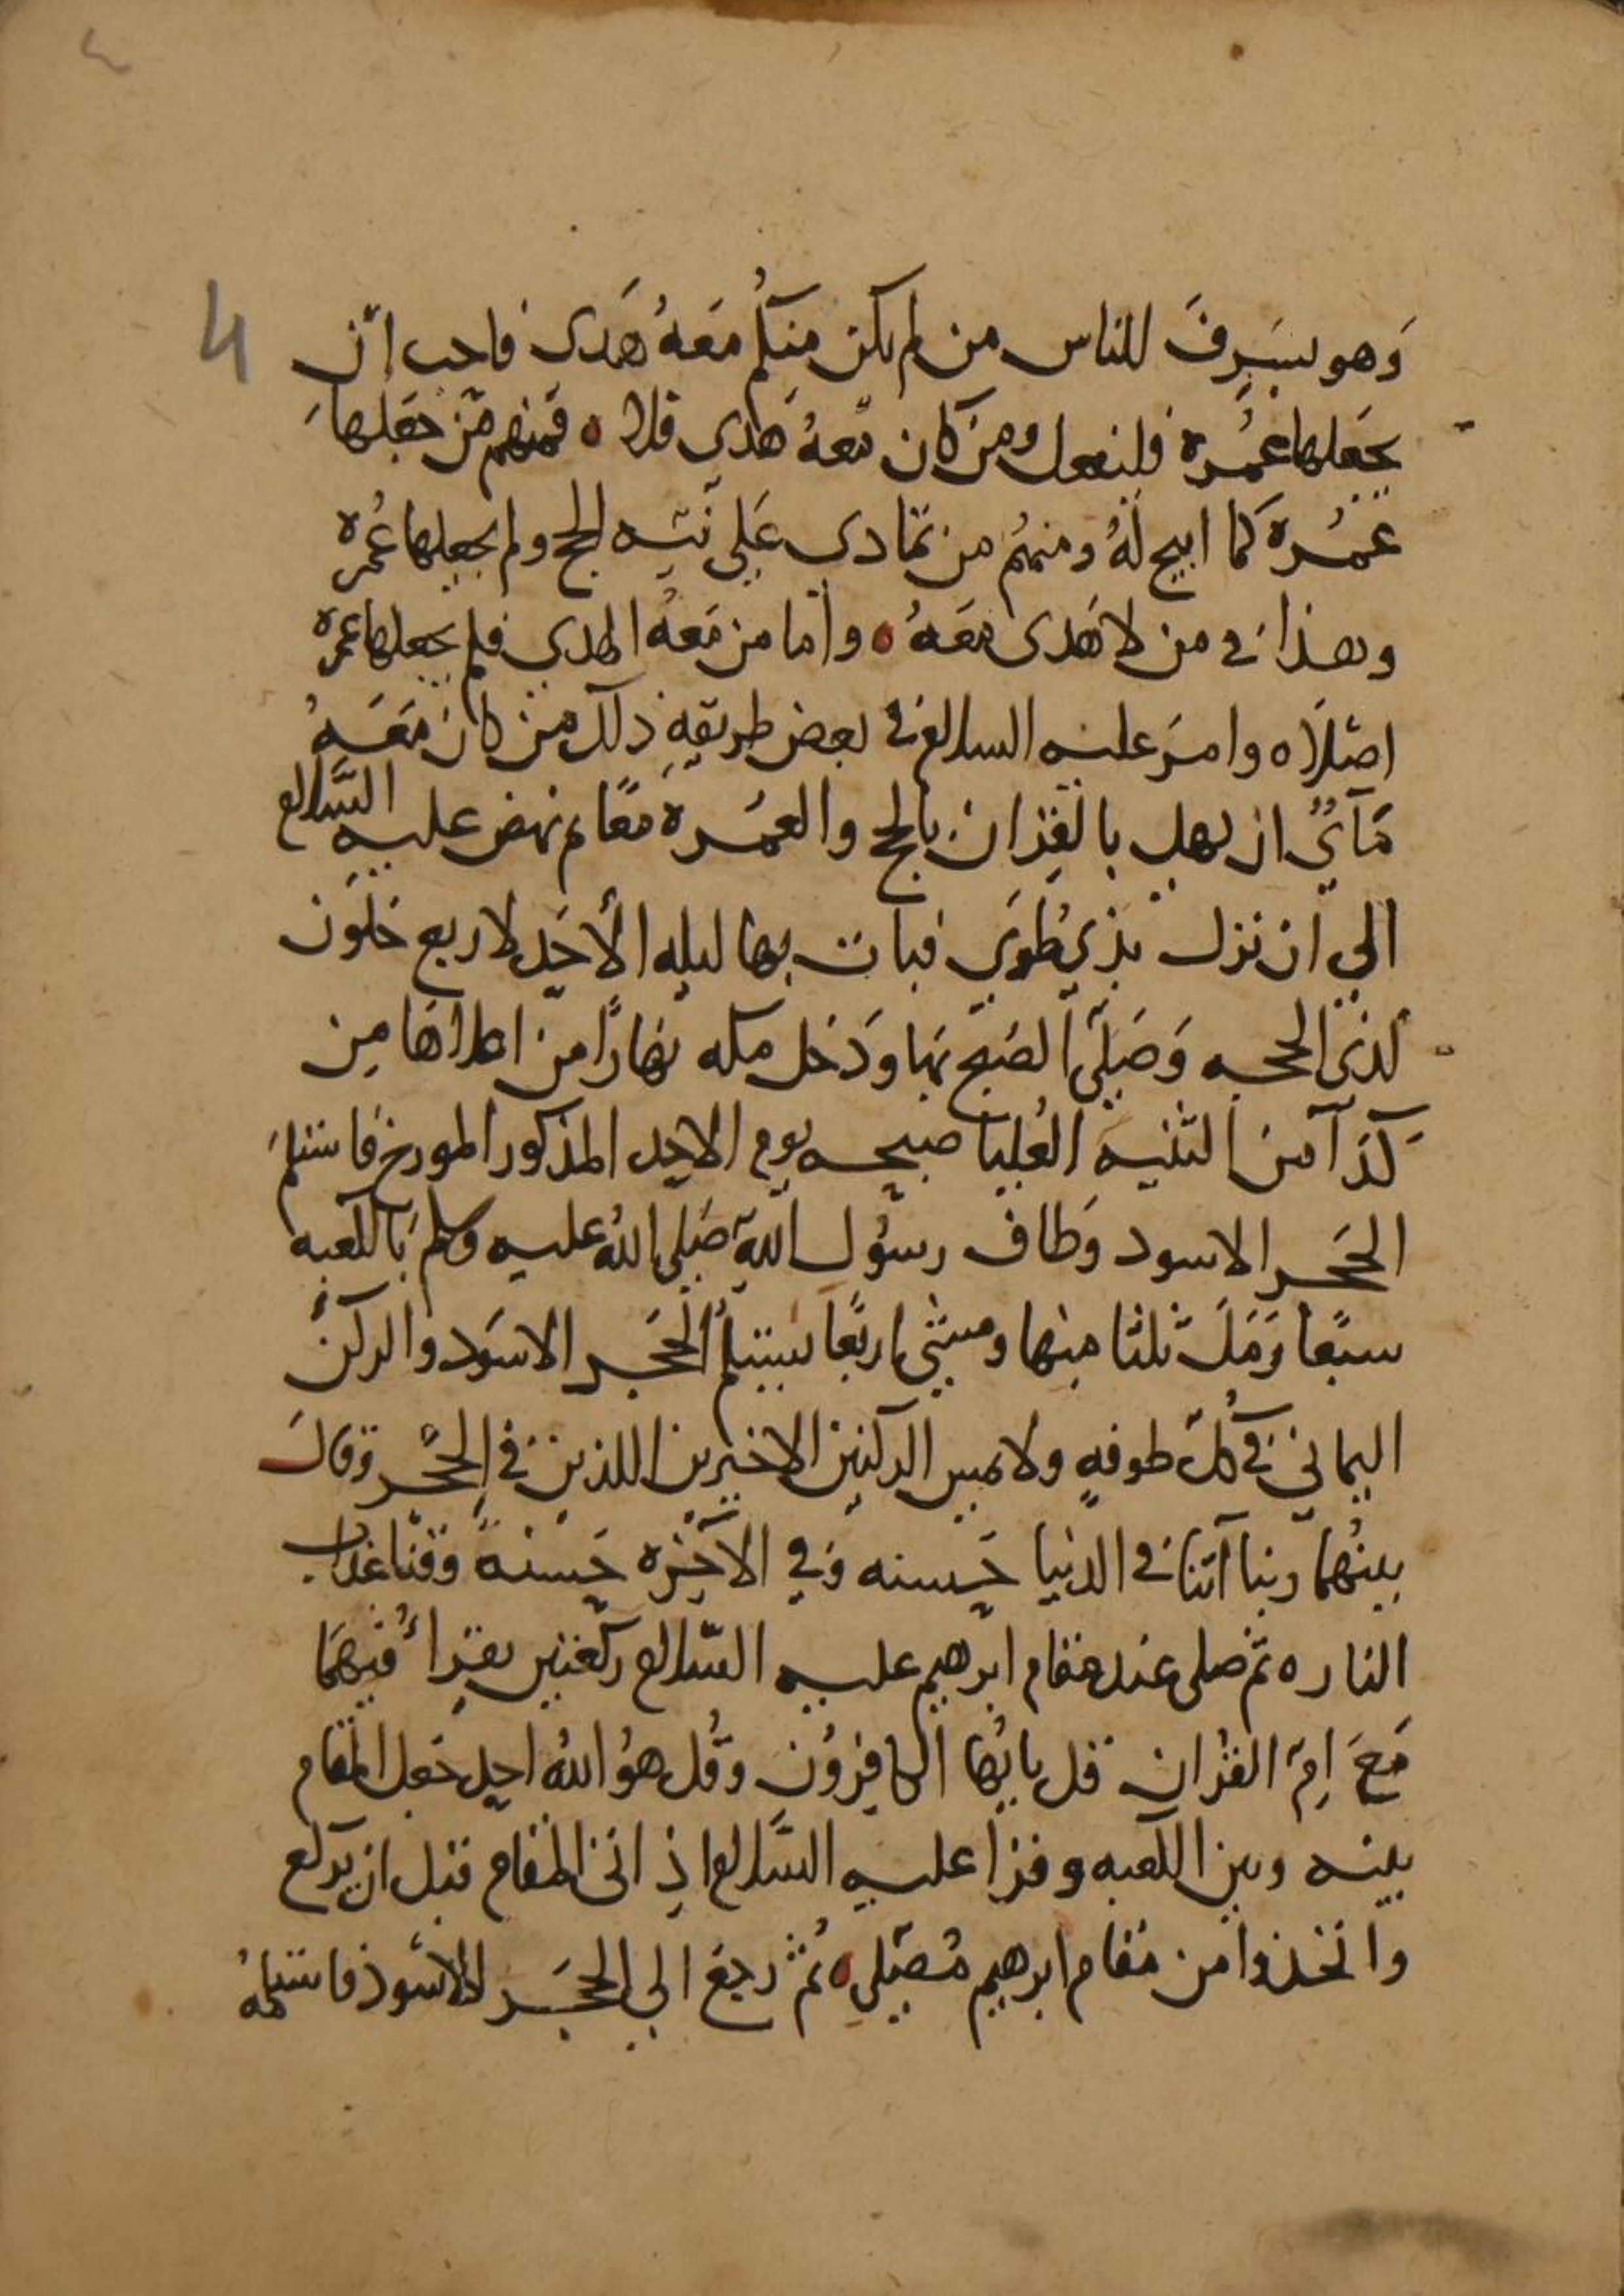 ٤
4
وَهو بسَرِفَ للناس من لم يكن منكم مَعَهُ هَدى فاحب ان
يجعلها عمُرة فليفعل ومن كان مَعهُ هَدي فلا ه فمنهم مَن جعَلها
عمُرة كما ابيح لهُ ومنهُم من تمادى عَلي نيّه الحج ولم يجعلها عُمره
وهذا في من لا هَدى معَهُ ه وامّا من مَعَهُ الهدي فلم يجعلها عمره
اصْلاً ه وامرَ عليه السلام في بعض طريقهِ ذلك من كان مَعَهُ
هَديٌ ان يهل بالقِران بالحج والعمُرة مَعًا ثم نهض عليه السَّلام
الي ان نزل بذي طُوَي فبات بها ليله الأحَد لاربع خلَون
لذي الحجه وَصَلَّى الصُبح بها وَدَخل مكه نهارًا من اعلاها مِن
كَدَآ من الثنيه العُليا صبيحه يوم الاحد المذكور المورخ فاستلمَ
الحَجر الاسود وَطاف رسُول اللهِ صَلى اللهُ عليه وسلم بالكعبه
سبَعًا رَمَلَ ثلثا منها ومشي اربعًا يستلمُ الحجَر الاسَود والركنَ
اليماني في كلّ طوفهٍ ولا يمس الركنين الاخيرين اللذين في الحِجْر وَقال
بينهُما ربنا آتنا في الدنيا حَسنه وَفي الآخِره حَسنةً وَقنا عذاب
النار ه ثم صلى عند مقام ابرهيم عليه السّلام ركعتين يقرأُ فيهمَا
مَعَ امِّ القرُان قل يايُها الكافِرُون وقُل هوُ اللهُ احد جَعل المقام
بينه وبين الكعبه وقرأ عليه السَّلام اذ اتى المقام قبل ان يركع
واتخذوا من مقام ابرهيم مُصَلى ه ثُم رجعَ الي الحجَر الاسْود فاستلمهُ